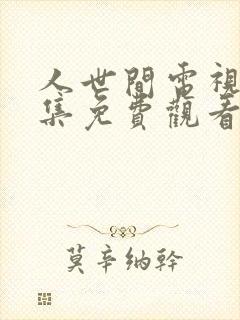 人世間電視
集免費觀看
莫辛納幹